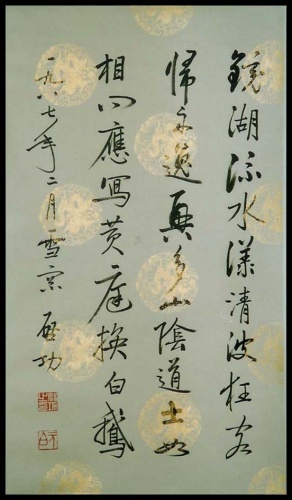 鏡湖流水漾清波狂客
歸舟逸興多山陰道士如
相見應寫黃庭換白鵝
一九八七年二月雪窗 啟功